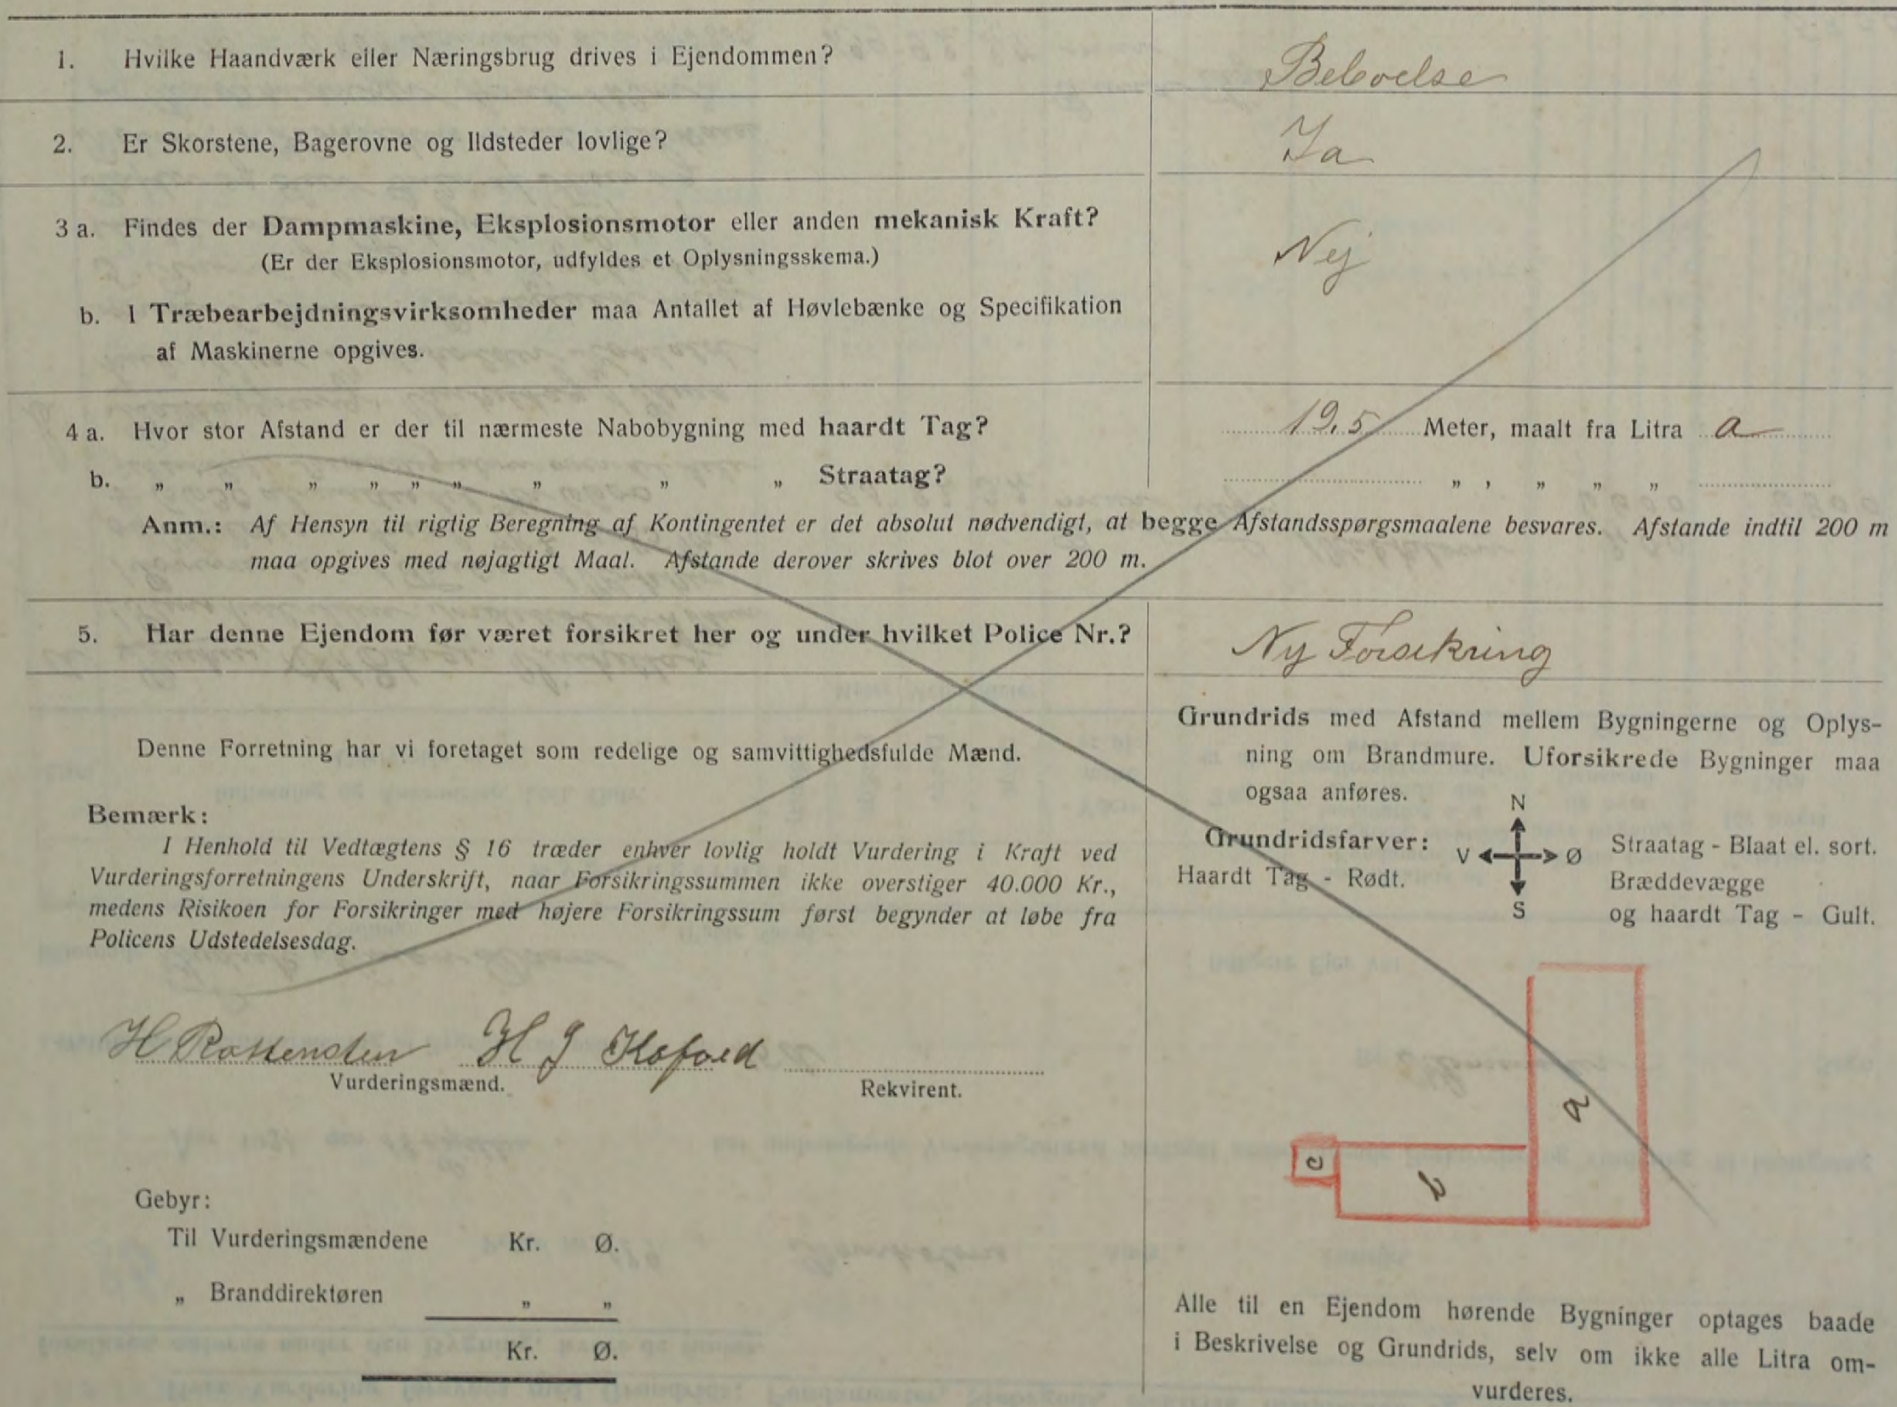 1. Hvilke Haandværk eller Næringsbrug drives i Ejendommen? Beboelse
2. Er Skorstene, Bagerovne og Ildsteder lovlige? Ja
3 a. Findes der Dampmaskine, Eksplosionsmotor eller anden mekanisk Kraft? Nej
(Er der Eksplosionsmotor, udfyldes et Oplysningsskema.)
b. I Træbearbejdningsvirksomheder maa Antallet af Høvlebænke og Specifikation
af Maskinerne opgives.
4 a. Hvor stor Afstand er der til nærmeste Nabobygning med haardt Tag? 19,5 Meter, maalt fra Litra a
b. „ „ „ „ „ „ „ „ „ Straatag? „ , „ „ „
Anm.: Af Hensyn til rigtig Beregning af Kontingentet er det absolut nødvendigt, at begge Afstandsspørgsmaalene besvares. Afstande indtil 200 m
maa opgives med nøjagtigt Maal. Afstande derover skrives blot over 200 m.
5. Har denne Ejendom før været forsikret her og under hvilket Police Nr.? Ny Forsikring
Denne Forretning har vi foretaget som redelige og samvittighedsfulde Mænd.
Bemærk:
I Henhold til Vedtægtens § 16 træder enhver lovlig holdt Vurdering i Kraft ved
Vurderingsforretningens Underskrift, naar Forsikringssummen ikke overstiger 40.000 Kr.,
medens Risikoen for Forsikringer med højere Forsikringssum først begynder at løbe fra
Policens Udstedelsesdag.
H J Kofoed
Vurderingsmænd. Rekvirent.
Gebyr:
Til Vurderingsmændene Kr. Ø.
„ Branddirektøren „ „
Kr. Ø.
Grundrids med Afstand mellem Bygningerne og Oplys-
ning om Brandmure. Uforsikrede Bygninger maa
ogsaa anføres.
N
Grundridsfarver: V Ø Straatag - Blaat el. sort.
Haardt Tag - Rødt. Bræddevægge
S og haardt Tag - Gult.
a
c
b
Alle til en Ejendom hørende Bygninger optages baade
i Beskrivelse og Grundrids, selv om ikke alle Litra om-
vurderes.